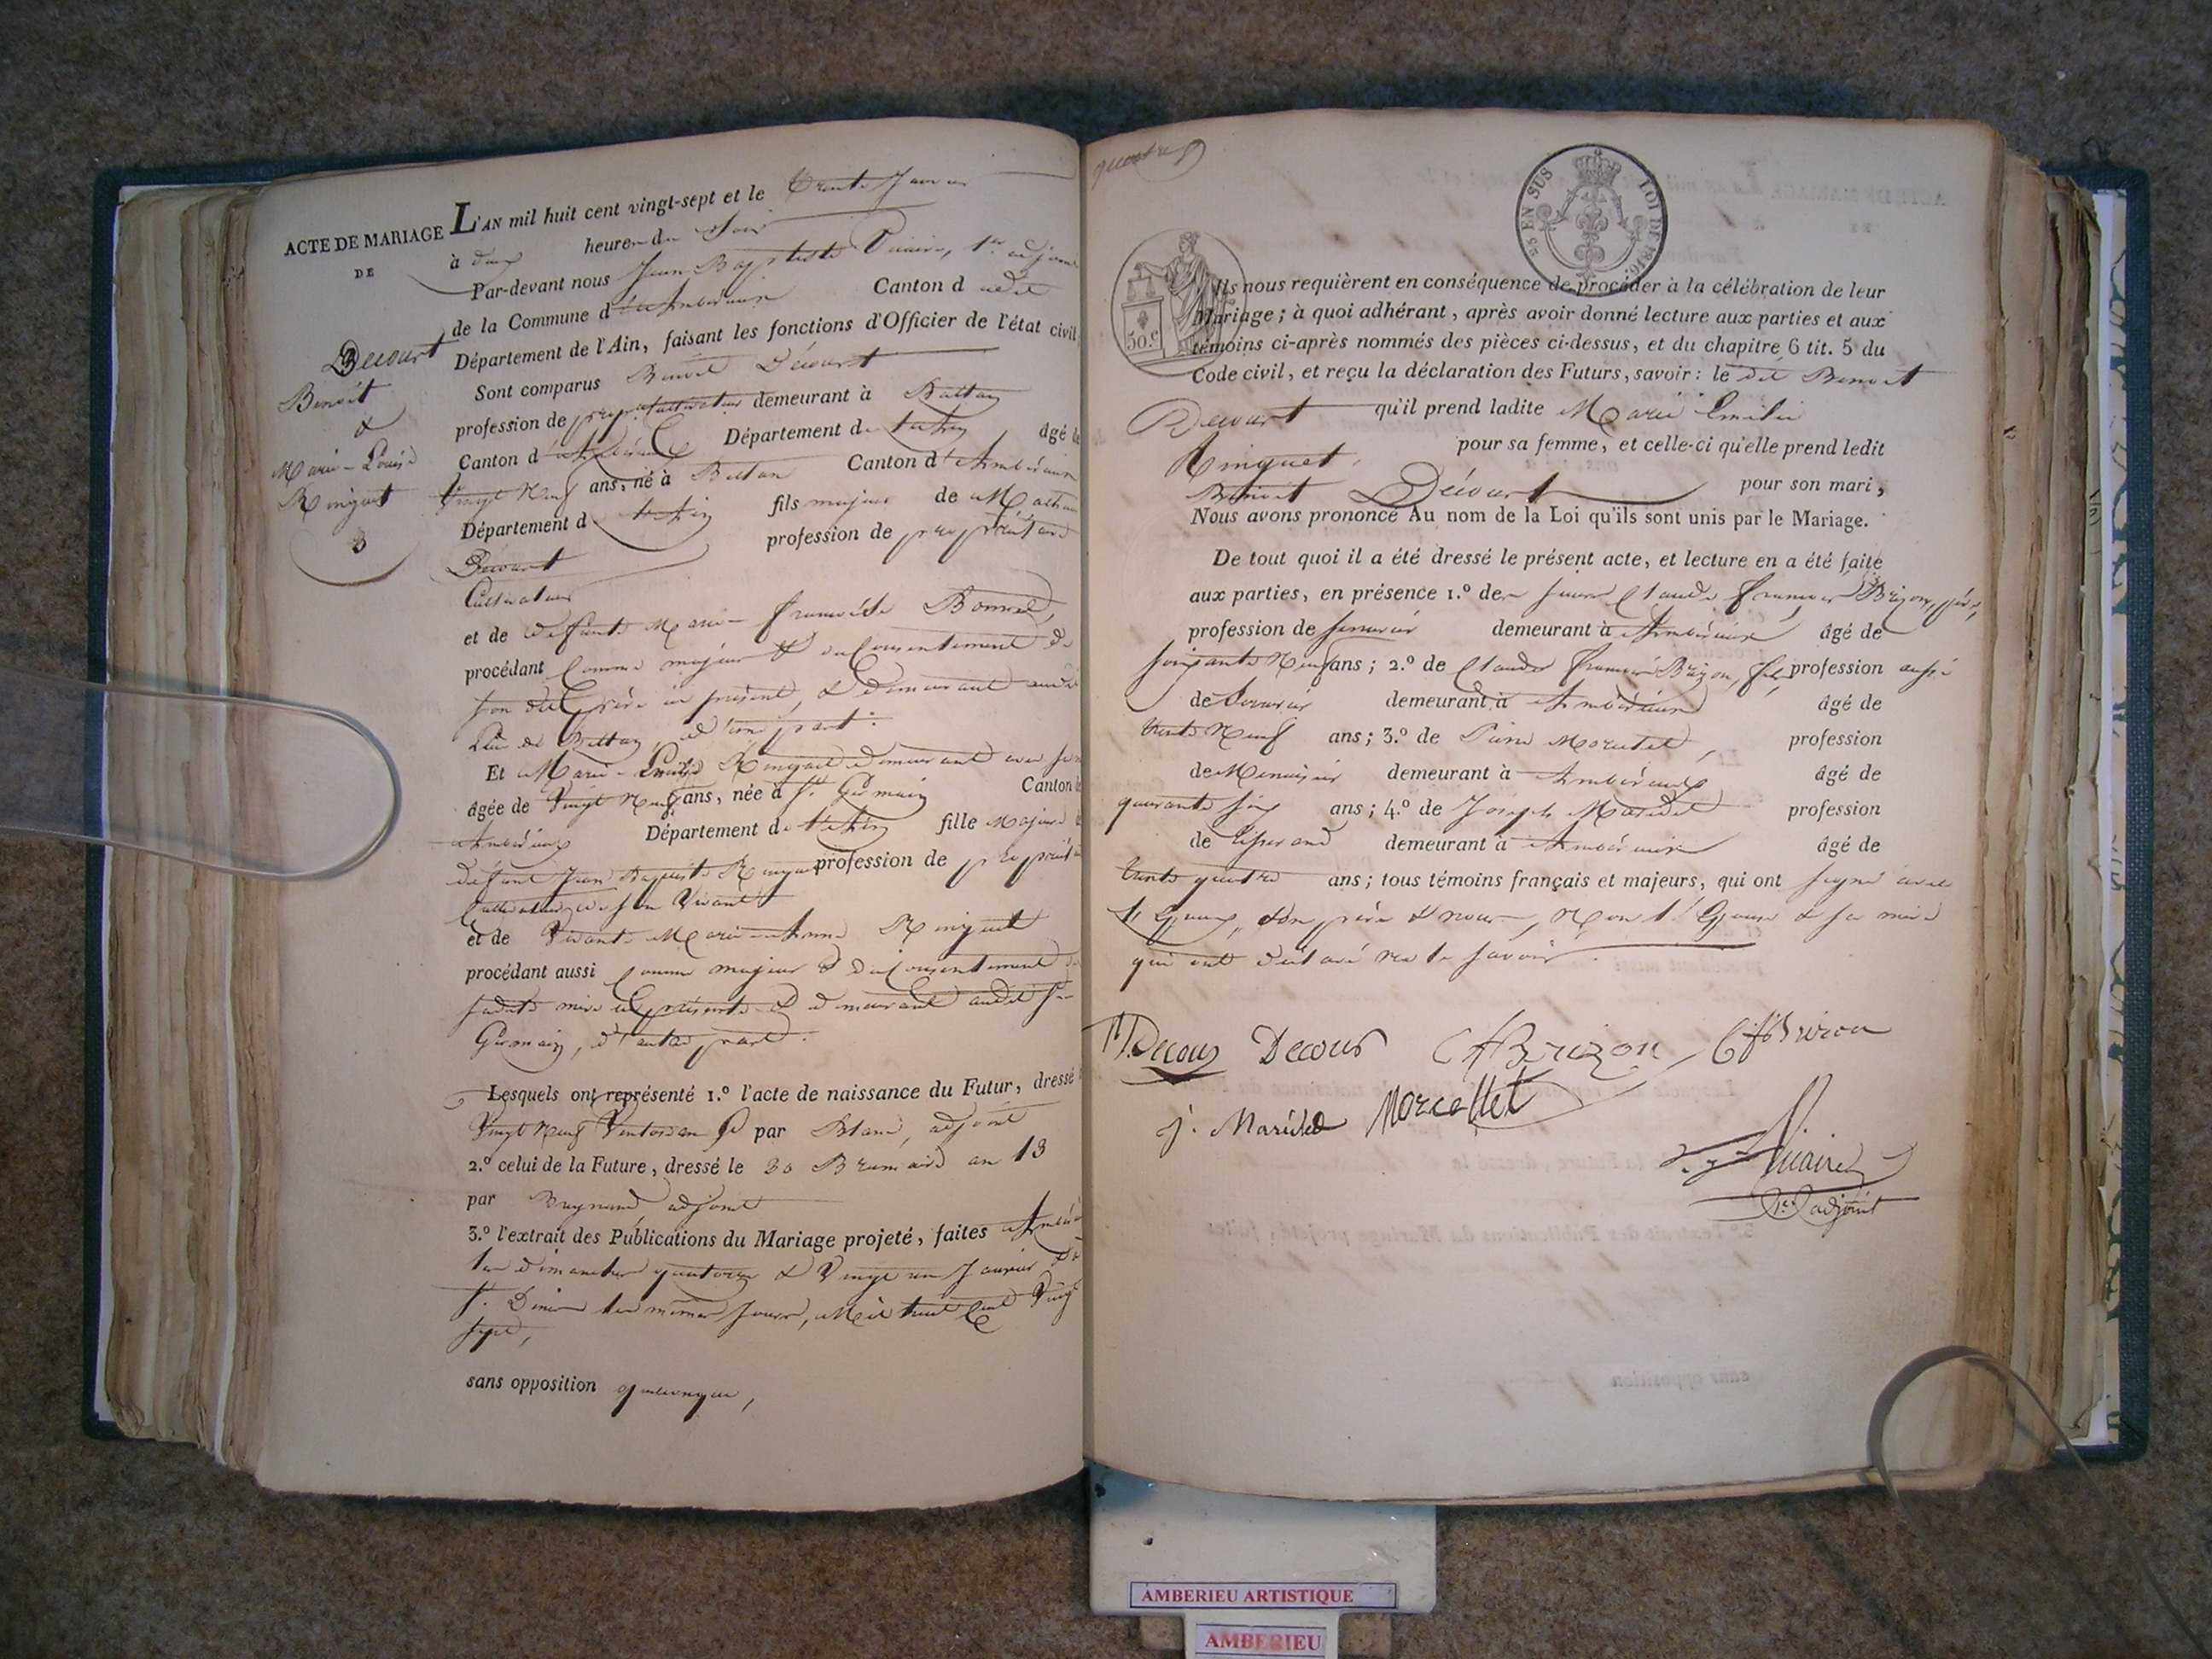 ACTE DE MARIAGE
DE
Decourt
Benoit
&
Marie-Louise
Ringuet
L'AN mil huit cent vingt-sept et le trente Janvier
à deux heures du Soir
Par-devant nous Jean Baptiste Vicaire, 1er adjoint
de la Commune d'Ambérieux Canton dudit
Département de l'Ain, faisant les fonctions d'Officier de l'état civil
Sont comparus Benoit Décourt
profession de cultivateur demeurant à Bettan
Canton d'Ambérieux Département de l'Ain, âgé de
vingt neuf ans, né à Bettan Canton d'Ambérieux
Département de l'Ain fils majeur de
Decourt profession de propriétaire
Cultivateur
et de défunte Marie Bonnet,
procédant comme majeur & du Consentement de
son dit père ici présent, & demeurant audit
lieu de Bettan, d'une part.
Et Marie-Emilie Ringuet demeurant avec sa
âgée de vingt neuf ans, née à St. Germain Canton
Ambérieux Département de l'Ain fille majeure de
défunt Jean Baptiste Ringuet profession de propriétaire
Cultivateur de son Vivant
et de Vivante Marie-Anne Ringuet
procédant aussi comme majeure & du Consentement de
sadite mère ici présente & demeurant audit St.
Germain, d'autre part.
Lesquels ont représenté 1.º l'acte de naissance du Futur, dressé
Vingt neuf Ventose an par Blanc, adjoint
2.º celui de la Future, dressé le 30 Brumaire an 13
par adjoint
3.º l'extrait des Publications du Mariage projeté, faites
les dimanches quatorze & Vingt un Janvier
St. Denis les mêmes jours, Mil huit Cent Vingt
sept,
sans opposition quelconque,
quatre
25 EN SUS
LOI DE 1816.
50.c
Ils nous requièrent en conséquence de procéder à la célébration de leur
Mariage; à quoi adhérant, après avoir donné lecture aux parties et aux
témoins ci-après nommés des pièces ci-dessus, et du chapitre 6 tit. 5 du
Code civil, et reçu la déclaration des Futurs, savoir: le dit Benoit
Decourt qu'il prend ladite Marie Emilie
Ringuet, pour sa femme, et celle-ci qu'elle prend ledit
Benoit Décourt pour son mari,
Nous avons prononcé Au nom de la Loi qu'ils sont unis par le Mariage.
De tout quoi il a été dressé le présent acte, et lecture en a été faite
aux parties, en présence 1.º de Claude François Brizon, père,
profession de serrurier demeurant à Ambérieux âgé de
soixante neuf ans; 2.º de Claude François Brizon, fils, profession aussi
de Serrurier demeurant à Ambérieux âgé de
trente neuf ans; 3.º de Pierre Morcellet, profession
de Menuisier demeurant à Ambérieux âgé de
quarante cinq ans; 4.º de Joseph Maréchal profession
de Tisserand demeurant à Ambérieux âgé de
trente quatre ans; tous témoins français et majeurs, qui ont signé avec
l'Epoux, son père & nous, Non l'Epouse & sa mère
qui ont déclaré ne le savoir.
Decour Decour Brizon
j. Maréchal Morcellet
Vicaire
1er adjoint
AMBERIEU ARTISTIQUE
AMBERIEU